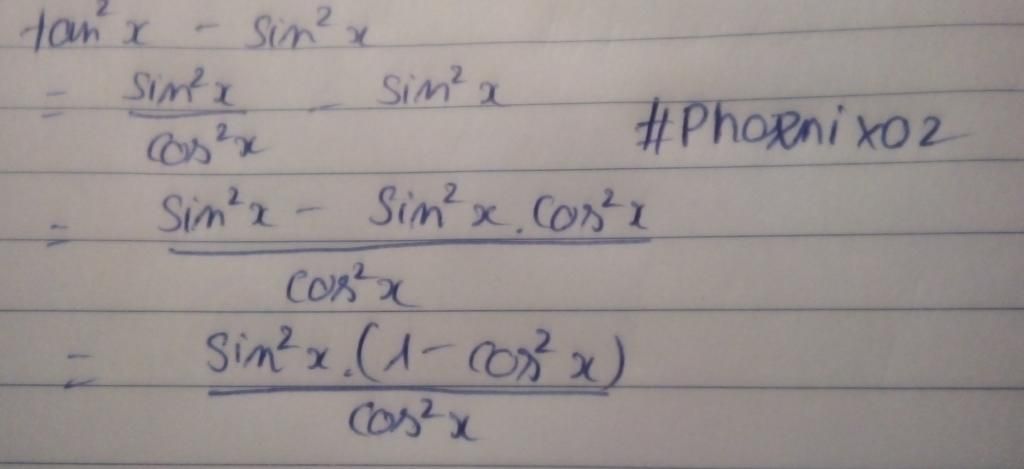 tan²x - Sin²x
= Sin²x / Cos²x - Sin²x
#PhoEniX02
= Sin²x - Sin²x . Cos²x / Cos²x
= Sin²x . (1 - Cos²x) / Cos²x